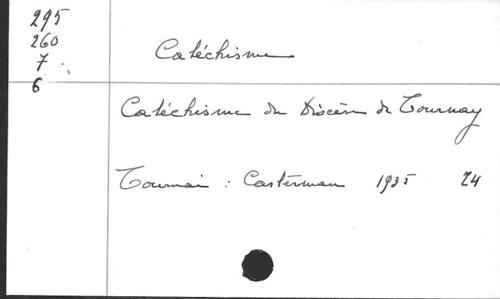 295
260
7
6
Catéchisme
Catéchisme du Diocèse de Tournay
Tournai : Casterman 1935 24